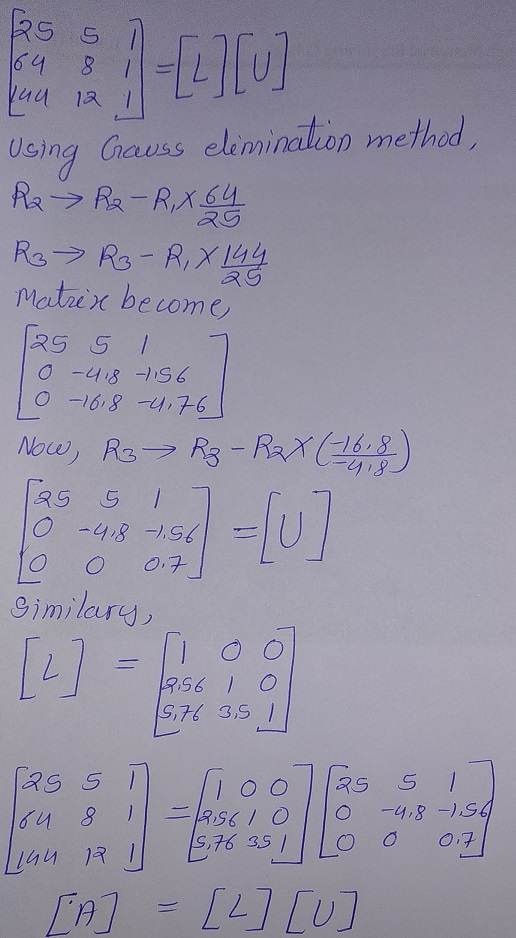 [25 5 1]
[64 8 1] = [L] [U]
[144 12 1]
Using Gauss elimination method,
R2 → R2 - R1 × 64/25
R3 → R3 - R1 × 144/25
Matrix become,
[25 5 1]
[0 -4.8 -1.56]
[0 -16.8 -4.76]
Now, R3 → R3 - R2 × (-16.8/-4.8)
[25 5 1]
[0 -4.8 -1.56] = [U]
[0 0 0.7]
Similary,
[L] = [1 0 0]
[2.56 1 0]
[5.76 3.5 1]
[25 5 1] [1 0 0] [25 5 1]
[64 8 1] = [2.56 1 0] [0 -4.8 -1.56]
[144 12 1] [5.76 3.5 1] [0 0 0.7]
[A] = [L] [U]